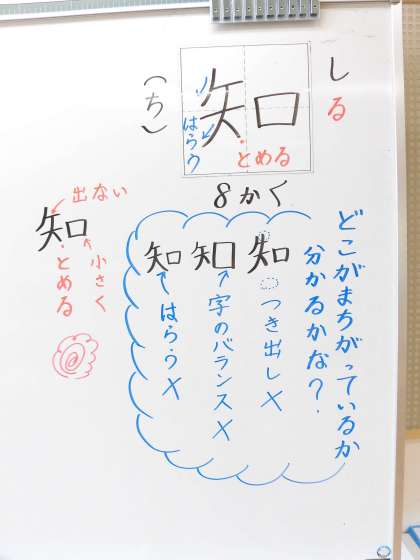 しる
知
(ち)
はらう
とめる
8かく
どこがまちがっているか
分かるかな?
知
つき出し×
知
字のバランス×
知
はらう×
知
出ない
小さく
とめる